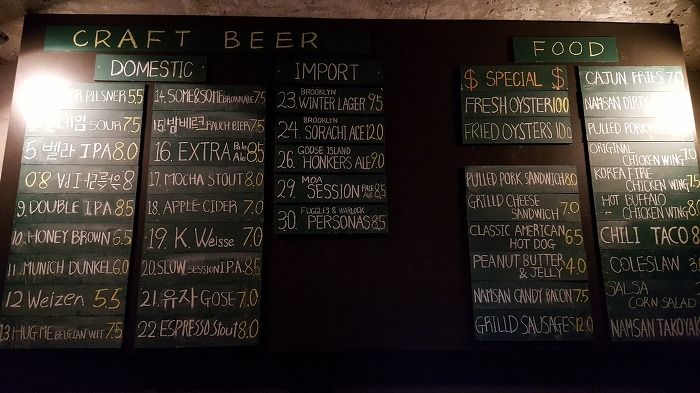 CRAFT BEER
DOMESTIC
PILSNER 5.5
SOUR 7.5
5. 벨라 IPA 8.0
IPA 8.0
9. DOUBLE IPA 8.5
10. HONEY BROWN 6.5
11. MUNICH DUNKEL 6.0
12 Weizen 5.5
13. HUG ME BELGIAN WIT 7.5
14. SOME&SOME BROWN ALE 7.5
15. 밤베르크 RAUCH BIER 7.5
16. EXTRA Pale Ale 8.5
17. MOCHA STOUT 8.0
18. APPLE CIDER 7.0
19. K. Weisse 7.0
20. SLOW SESSION I.P.A. 8.5
21. 유자 GOSE 7.0
22 ESPRESSO Stout 8.0
IMPORT
23. BROOKLYN WINTER LAGER 9.5
24. BROOKLYN SORACHI ACE 12.0
26. GOOSE ISLAND HONKERS ALE 9.0
29. MOA SESSION PALE ALE
30. FUGGLES & WARLOCK PERSONAS 8.5
FOOD
$ SPECIAL $
FRESH OYSTER 10.0
FRIED OYSTERS 10.0
PULLED PORK SANDWICH 8.0
GRILLED CHEESE SANDWICH 7.0
CLASSIC AMERICAN HOT DOG 6.5
PEANUT BUTTER & JELLY 4.0
NAMSAN CANDY BACON 7.5
GRILLD SAUSAGES 12.0
CAJUN FRIES 7.0
NAMSAN DIRTY
PULLED PORK
ORIGINAL CHICKEN WING 7.0
KOREA FIRE CHICKEN WING 7.5
HOT BUFFALO CHICKEN WING 8.0
CHILI TACO 8
COLESLAW 3.0
SALSA CORN SALAD
NAMSAN TAKOYAK